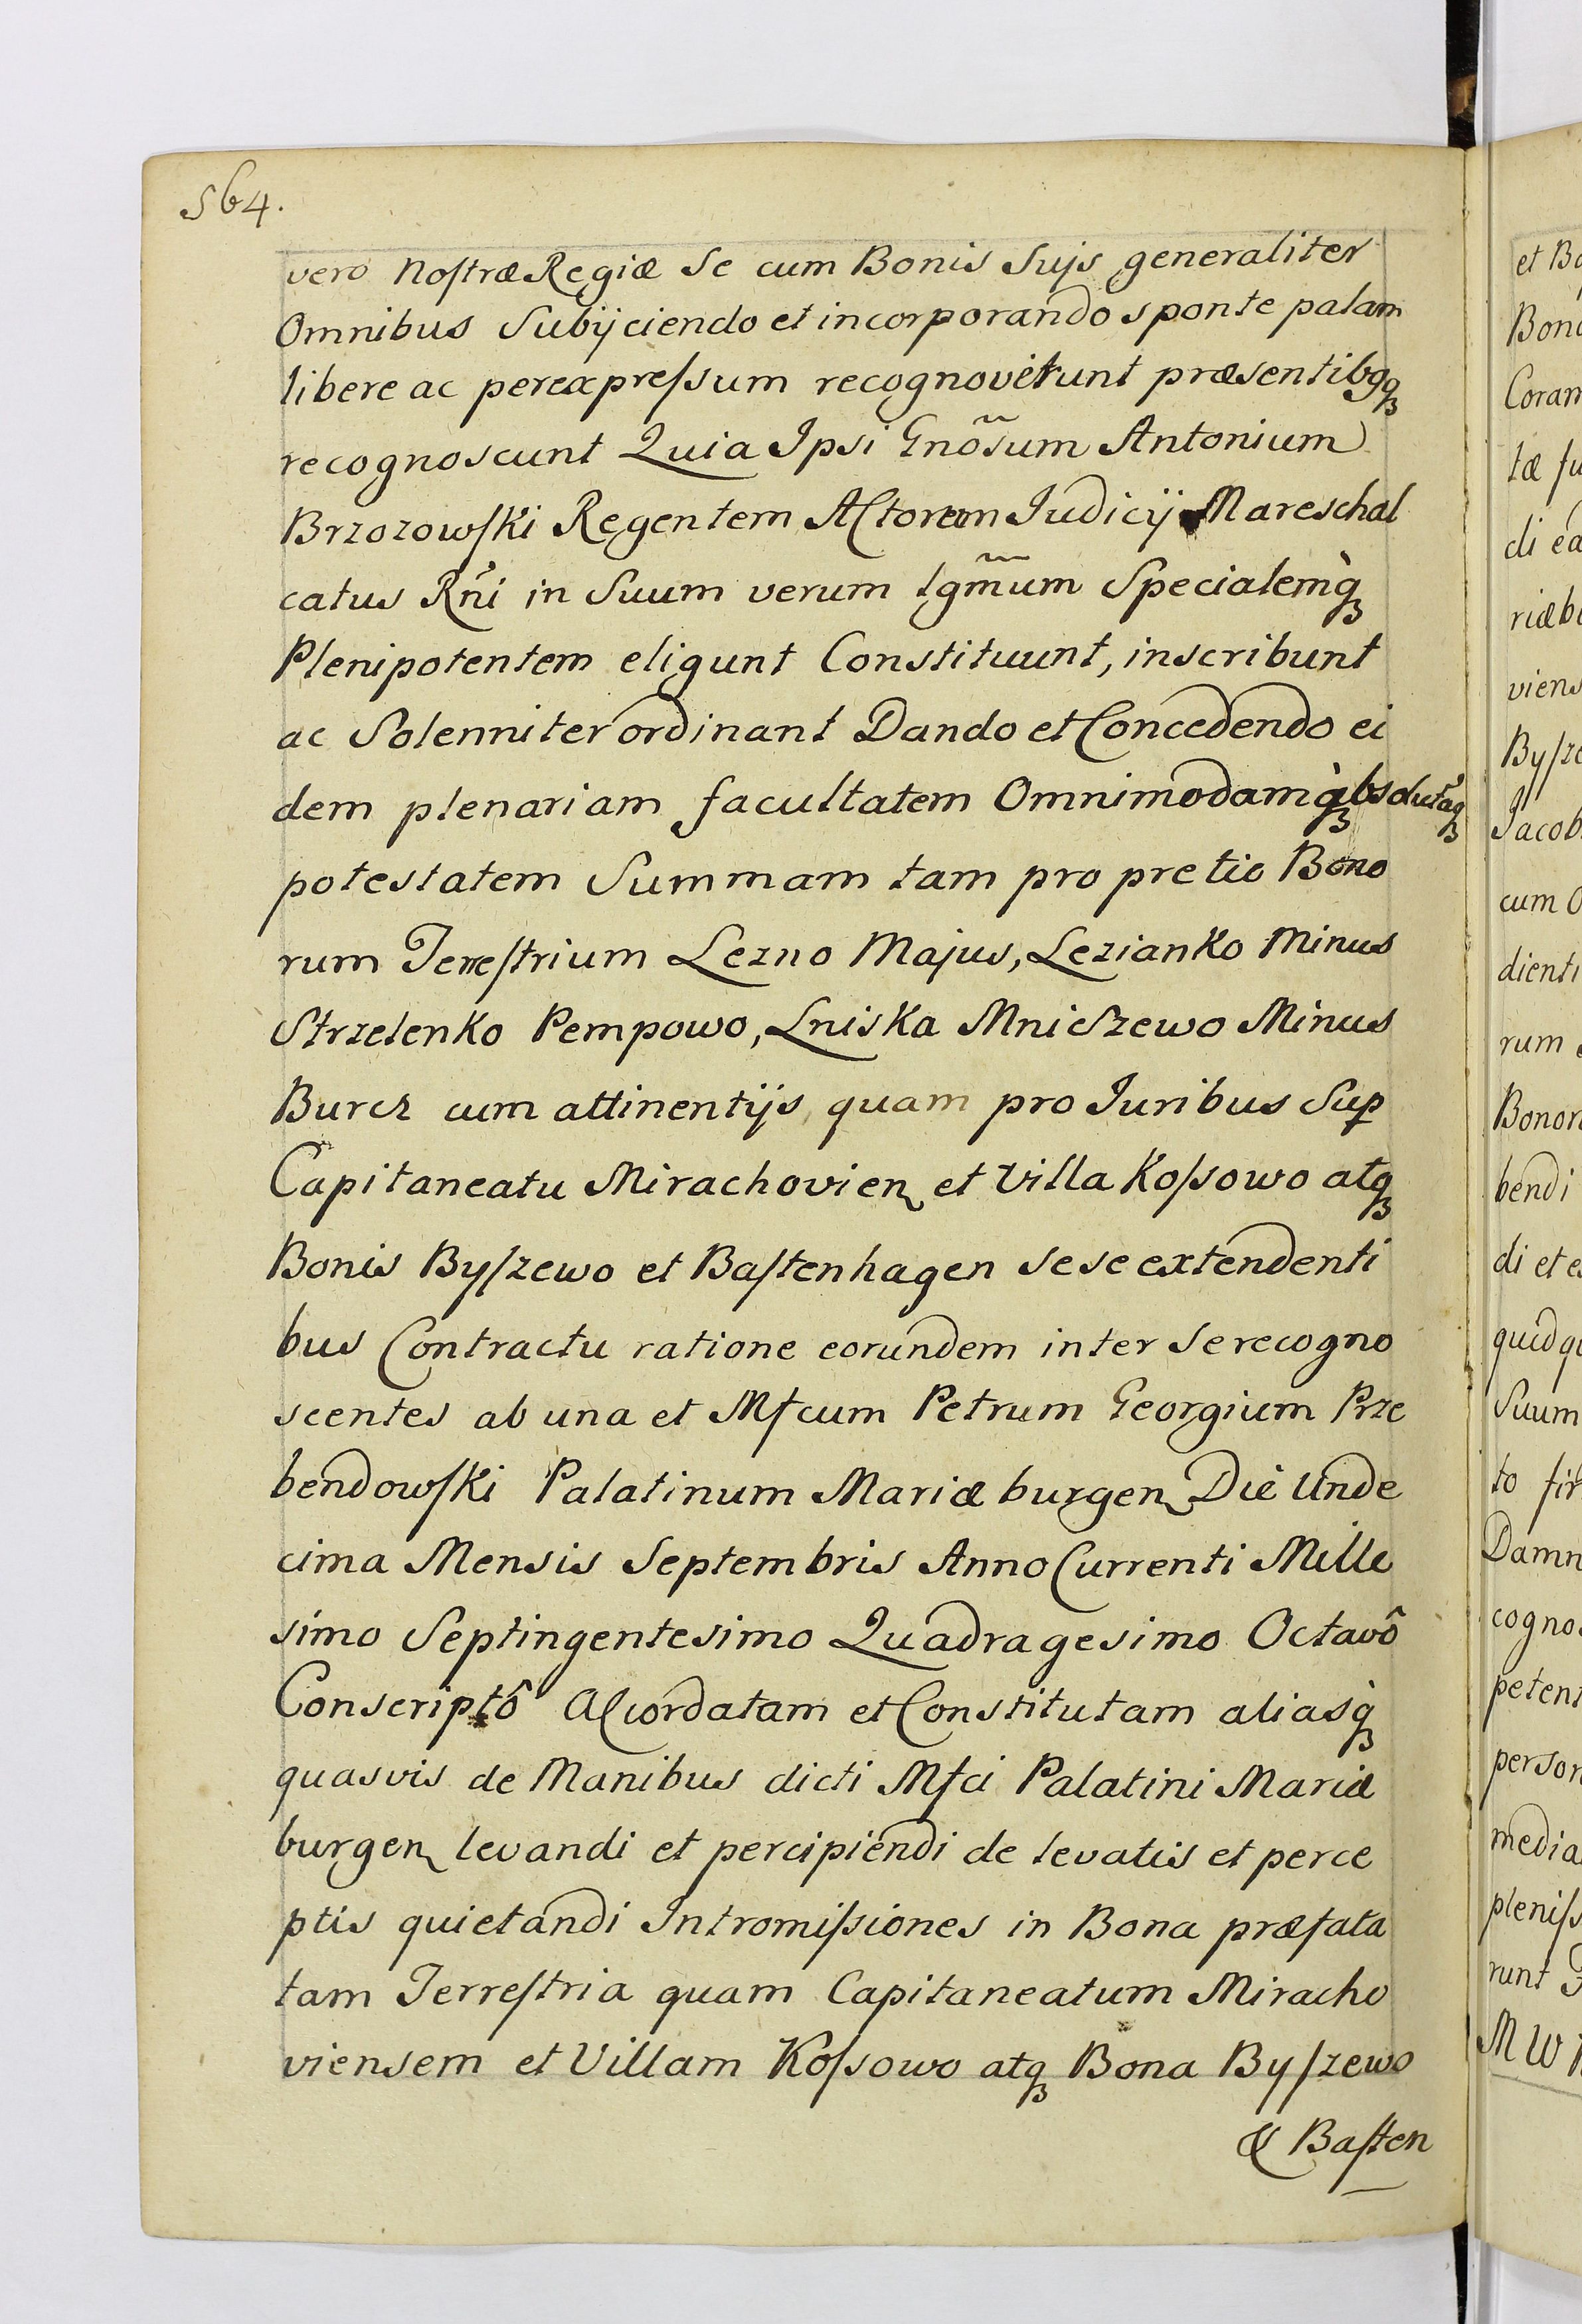 564.
vero Nostræ Regiæ Se cum Bonis Suijs generaliter
Omnibus Subijciendo et incorporando sponte palam
libere ac per expressum recognoverunt præsentibqꝫ
recognoscunt Quia Ipsi Gnõsum Antonium
Brzozowski Regentem Actorem Judicij Mareschal
catus Rñi in Suum verum lgm̃um Specialemq̀ꝫ
Plenipotentem eligunt Constituunt, inscribunt
ac Solenniter ordinant Dando et Concedendo ei
dem plenariam facultatem Omnimodamq̀ꝫ absolutáqꝫ
potestatem Summam tam pro pretio Bono
rum Terrestrium Lezno Majus, Lezianko Minus
Strzelenko Pempowo, Lniska Mniszewo Minus
Burcz cum attinentijs, quam pro Juribus Sup
Capitaneatu Mirachovien et Villa Kossowo atqꝫ
Bonis Byszewo et Bastenhagen sese extendenti
bus Contractu ratione eorundem inter Se recogno
scentes ab una et Mfcum Petrum Georgium Prze
bendowski Palatinum Mariæburgen Die Unde
cima Mensis Septembris Anno Currenti Mille
simo Septingentesimo Quadragesimo Octavô
Conscriptô Accordatam et Constitutam aliasq̀ꝫ
quasvis de Manibus dicti Mfci Palatini Mariæ
burgen levandi et percipiendi de levatis et perce
ptis quietandi Intromissiones in Bona præfata
tam Terrestria quam Capitaneatum Miracho
viensem et Villam Kossowo atqꝫ Bona Byszewo
& Basten
et Bo
Bono
Coram
tæ fu
di ea
riæbu
viens
Bysze
Jacob
cum O
dienti
rum
Bonor
bendi
di et e
quidqu
Suum
to fir
Damn
cognos
petent
person
media
pleniss
runt
M W